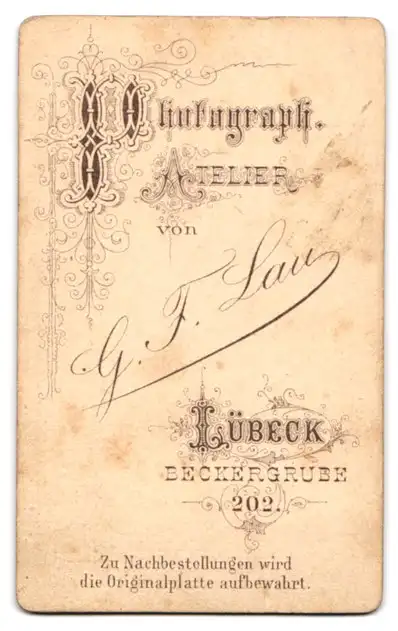 Photograph.
ATELIER
von
G. F. Lau
LÜBECK
BECKERGRUBE
202.
Zu Nachbestellungen wird
die Originalplatte aufbewahrt.